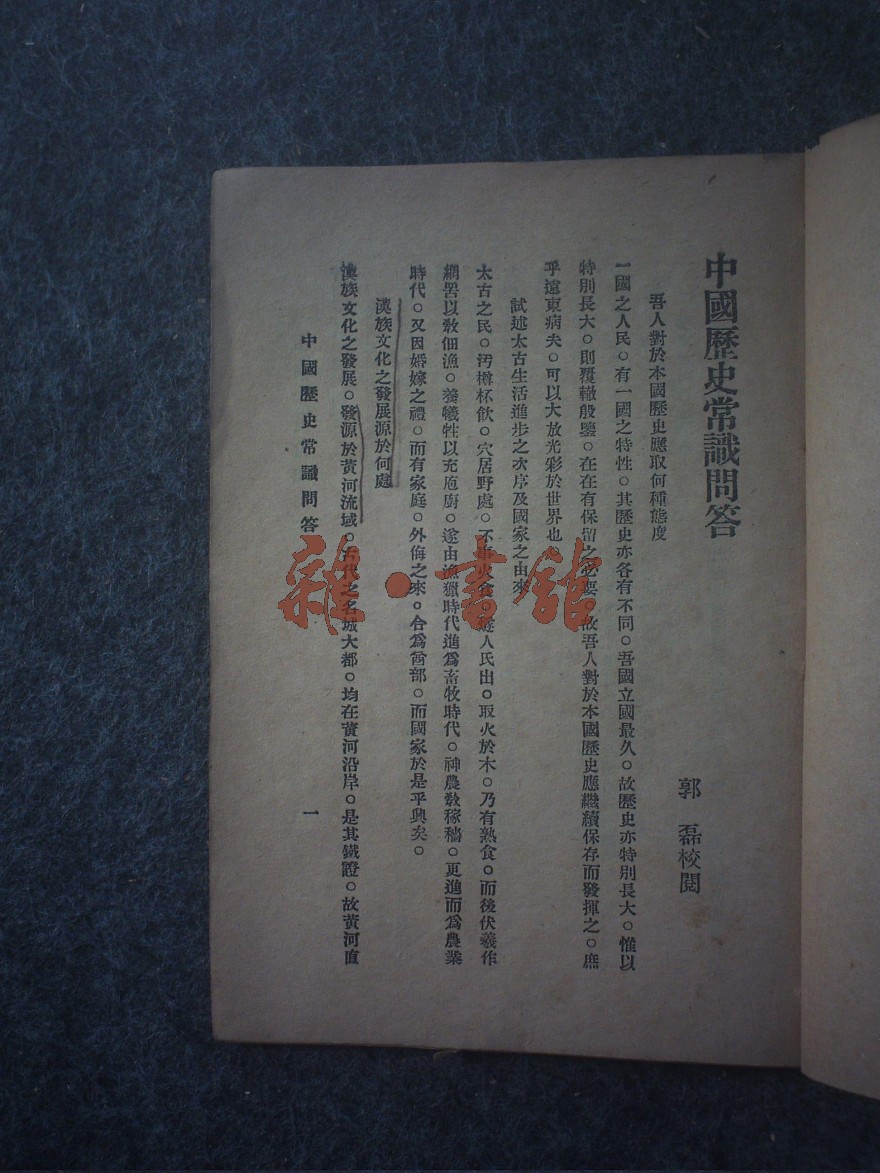 中國歷史常識問答
郭磊校閱
吾人對於本國歷史應取何種態度
一國之人民。有一國之特性。其歷史亦各有不同。吾國立國最久。故歷史亦特別長大。惟以
特別長大。則覆轍殷鑒。在在有保留之必要。故吾人對於本國歷史應繼續保存而發揮之。庶
乎遠東病夫。可以大放光彩於世界也
試述太古生活進步之次序及國家之由來
太古之民。汚樽杯飲。穴居野處。不事火食。燧人氏出。取火於木。乃有熟食。而後伏羲作
網罟以敎佃漁。養犧牲以充庖廚。遂由漁獵時代進爲畜牧時代。神農敎稼穡。更進而爲農業
時代。又因婚嫁之禮。而有家庭。外侮之來。合爲酋部。而國家於是乎興矣。
漢族文化之發展源於何處
漢族文化之發展。發源於黃河流域。古代之名城大都。均在黃河沿岸。是其鐵證。故黃河直
中國歷史常識問答
一
雜·書館